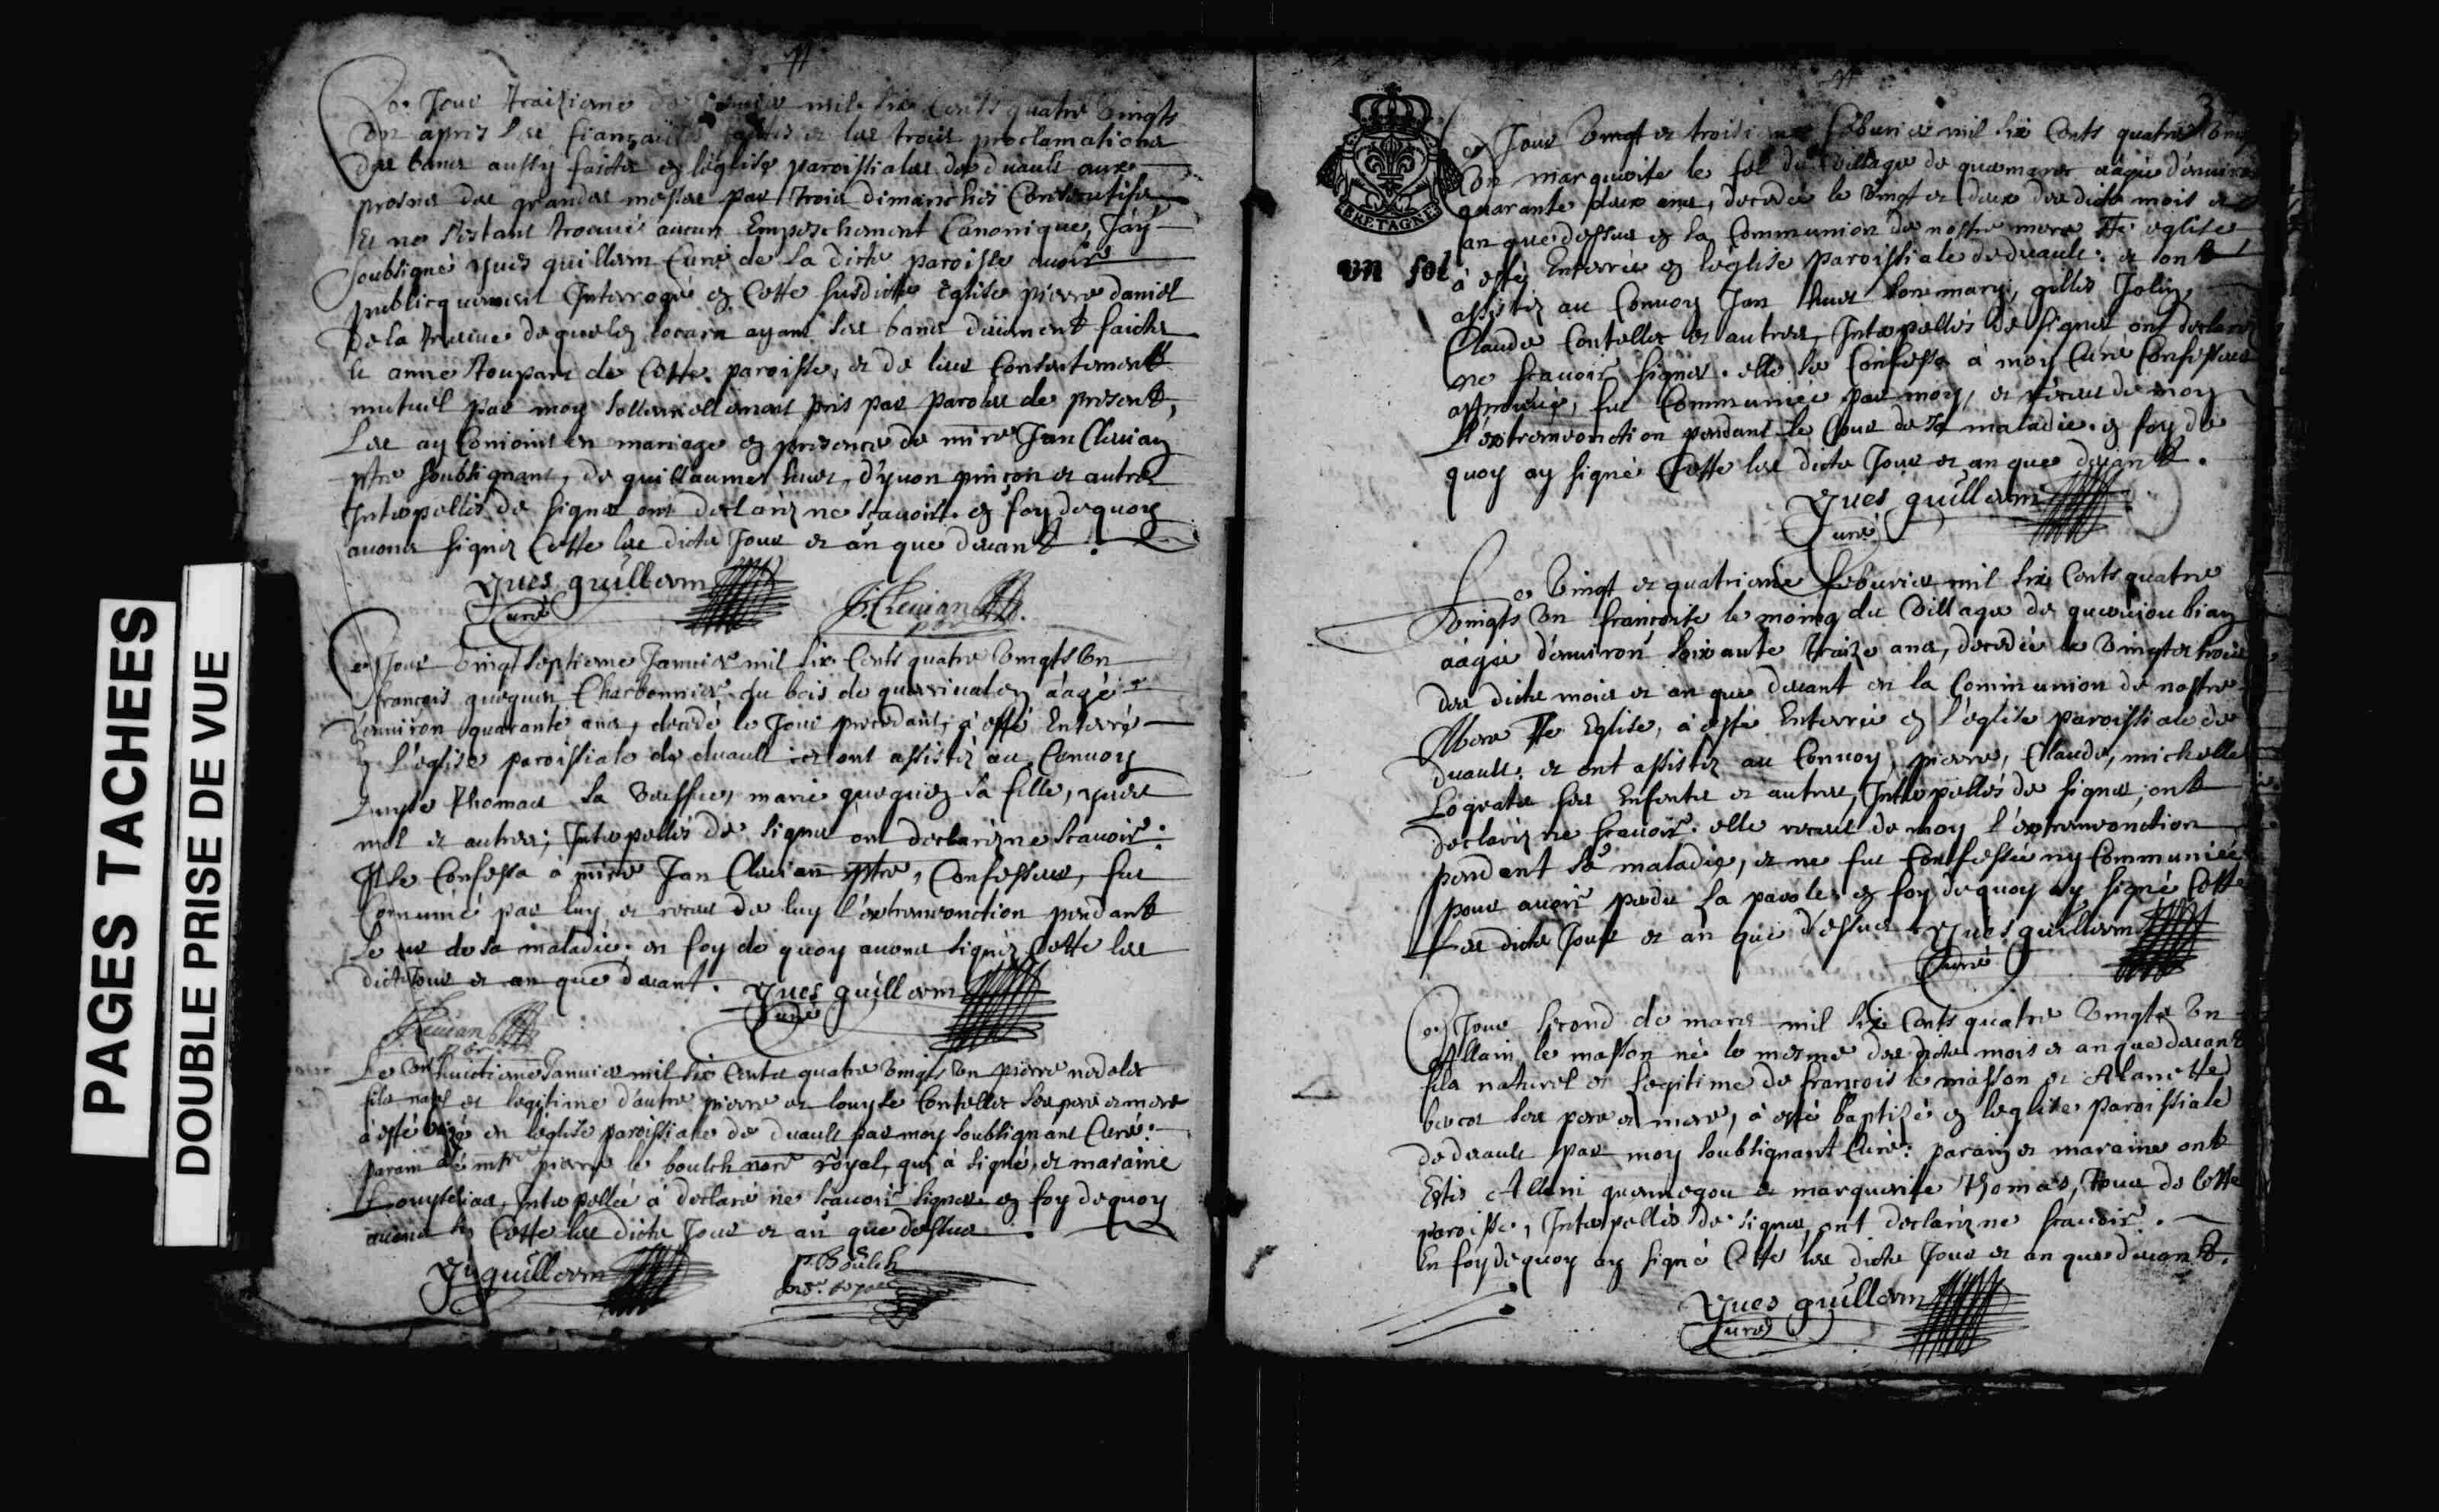 PAGES TACHEES
DOUBLE PRISE DE VUE
Ce Jour traizieme de mil six Cents quatre vingts
Un apres les fiançailles faictes et les trois proclamations
des banes aussy faictes en l'eglise paroissiales de duault aux
prosnes des grandes messes par trois dimanches Consecutifs,
Et ne s'estant trouvé aucun Empeschement Canonique, J'ay
soubsigné yves guillerm Curé de la dicte paroisse avoir
publicquement Interrogé en Cette susdicte Eglise pierre daniel
de la treue de locarn ayant ses banes duement faictes
et anne de Cette paroisse, et de leur Consentement
mutuel par moy sollemnellement pris par paroles de present,
Les ay Conioint en mariage en presence de mire Jan Clevian
ptre soubsignant, de guillaume huer, d'yvon pinçon et autres
Interpellés de signer ont declaréz ne scavoir. en foy de quoy
avons signéz Cette les dicts Jour et an que devant.
yves guillerm
Curé
J. Clevian
Ce Jour vingt septieme Janvier mil six Cents quatre vingts Un
françois queguen Charbonnier du bois de aagé
d'environ quarante ans, decedé le Jour precedant, a esté Enterré
en l'eglise paroissiale de duault et ont assistéz au Convoy
Thomas sa veuffve, marie queguen sa fille, yves
mel et autres; Interpellés de signer ont declaréz ne scavoir:
Il se Confessa a mire Jan Clevian ptre, Confesseur, fut
Comunié par luy et receut de luy l'extremonction pendant
le de sa maladie; en foy de quoy avons signéz Cette les
dicts Jour et an que devant. yves guillerm
Curé
J. Clevian
Le huictieme Janvier mil six Cents quatre vingts Un pierre nedelec
fils naturel et legitime d'autre pierre et louyse Contellec ses pere et mere
a esté en l'eglise paroissiale de duault par moy soubsignant Curé:
parain a esté pierre le boulch royal, qui a signé, et maraine
Interpellée a declaré ne scavoir signer. en foy de quoy
avons Cette les dicts Jour et an que dessus.
Y guillerm
P. Boulch
3
BRETAGNE
un sol
Ce Jour vingt et troisieme febvrier mil six Cents quatre vingts
Un marguerite le fol du village de aagée d'environ
quarante deux ans, decedée le vingt et deux des dicts mois et
an que dessus en la Communion de nostre mere Ste eglise
a esté Enterrée en l'eglise paroissiale de duault: et ont
assistéz au Convoy Jan huer son mary, gilles Jolin,
Claude Contellec et autres, Interpellés de signer ont declaréz
ne scavoir signer. elle se Confessa à moy Curé Confesseur
approuvé, fut Communiée par moy, et receut de moy
l'extremonction pendant le Cour de sa maladie. en foy de
quoy ay signé Cette les dicts Jour et an que devant.
yves guillerm
Curé
Ce vingt et quatrieme febvrier mil six Cents quatre
vingts Un françoise le moing du village de
aagée d'environ soixante traize ans, decedée le vingt et trois
des dicts mois et an que devant en la Communion de nostre
Mere Ste Eglise, à esté Enterrée en l'eglise paroissiale de
duault: et ont assistéz au Convoy, pierre, Claude, michelle
ses Enfents et autres, Interpellés de signer, ont
declaréz ne scavoir. elle receut de moy l'extremonction
pendant sa maladie, et ne fut Confessée ny Communiée
pour avoir perdu la parole. en foy de quoy ay signé Cette
Les dicts Jour et an que dessus. yves guillerm
Curé
Ce Jour second de mars mil six Cents quatre vingts Un
Allain le masson né le mesme des dicts mois et an que devant
fils naturel et legitime de françois le masson et
ses pere et mere, à esté baptizé en l'eglise paroissiale
de duault par moy soubsignant Curé: parain et maraine ont
Estés Allain et marguerite Thomas, tous de Cette
paroisse, Interpellés de signer, ont declaréz ne scavoir.
En foy de quoy ay signé Cette les dicts Jour et an que devant.
yves guillerm
Curé